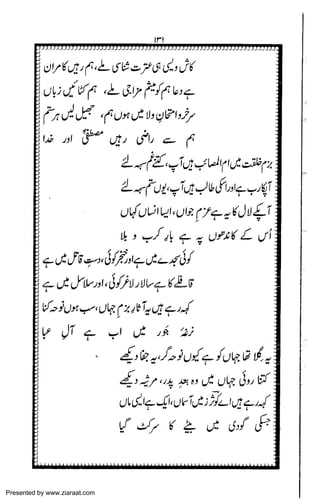 ۱۳۱
کاش ویسی ہی عترت شناسی ملے، ہم رہیں کامران
ہے دعا ہم کو میثم مزاجی ملے، ہم کٹائیں زباں
سرخرو امتحانِ ولا میں ہوں ہم، جھیل لیں ہر ستم
ہم سے راضی رہیں مصطفیٰؐ اور خدا
بزمِ خلقت میں ام المصائب ہیں آپ، کتنے غم سہہ لئے
آپ کا رب ہے اور ابی طالب ہیں آپ، یوں ستم سہہ لئے
آپکے لال کا ہے عزم جواں، ایسا انساں کہاں
اُس کے کاندھوں پہ ہے بارِ کرب و بلا
کوئی سجدے میں ہے اور خنجر کوئی، دستِ قاتل میں ہے
قافلے کا ہے سالار لاغر کوئی، اور سلاسل میں ہے
کہہ رہے ہیں یہ آثارِ بزمِ جہاں، سب ہوں نوحہ کناں
نرغۂ جور میں اب ہے آلِ عبا
یہ گلا تھا جہاں کو ہے کیوں نوحہ گر، یہ جفا دیکھئے
کتنا روئی جہاں میں وہ بعدِ پدر، مرثیہ دیکھئے
کہہ رہے ہیں اے کوثرؔ زمین آسماں، ایک ہے ایسی ماں
جسکی گودی میں بیٹے کا سر کٹ گیا
Presented by www.ziaraat.com